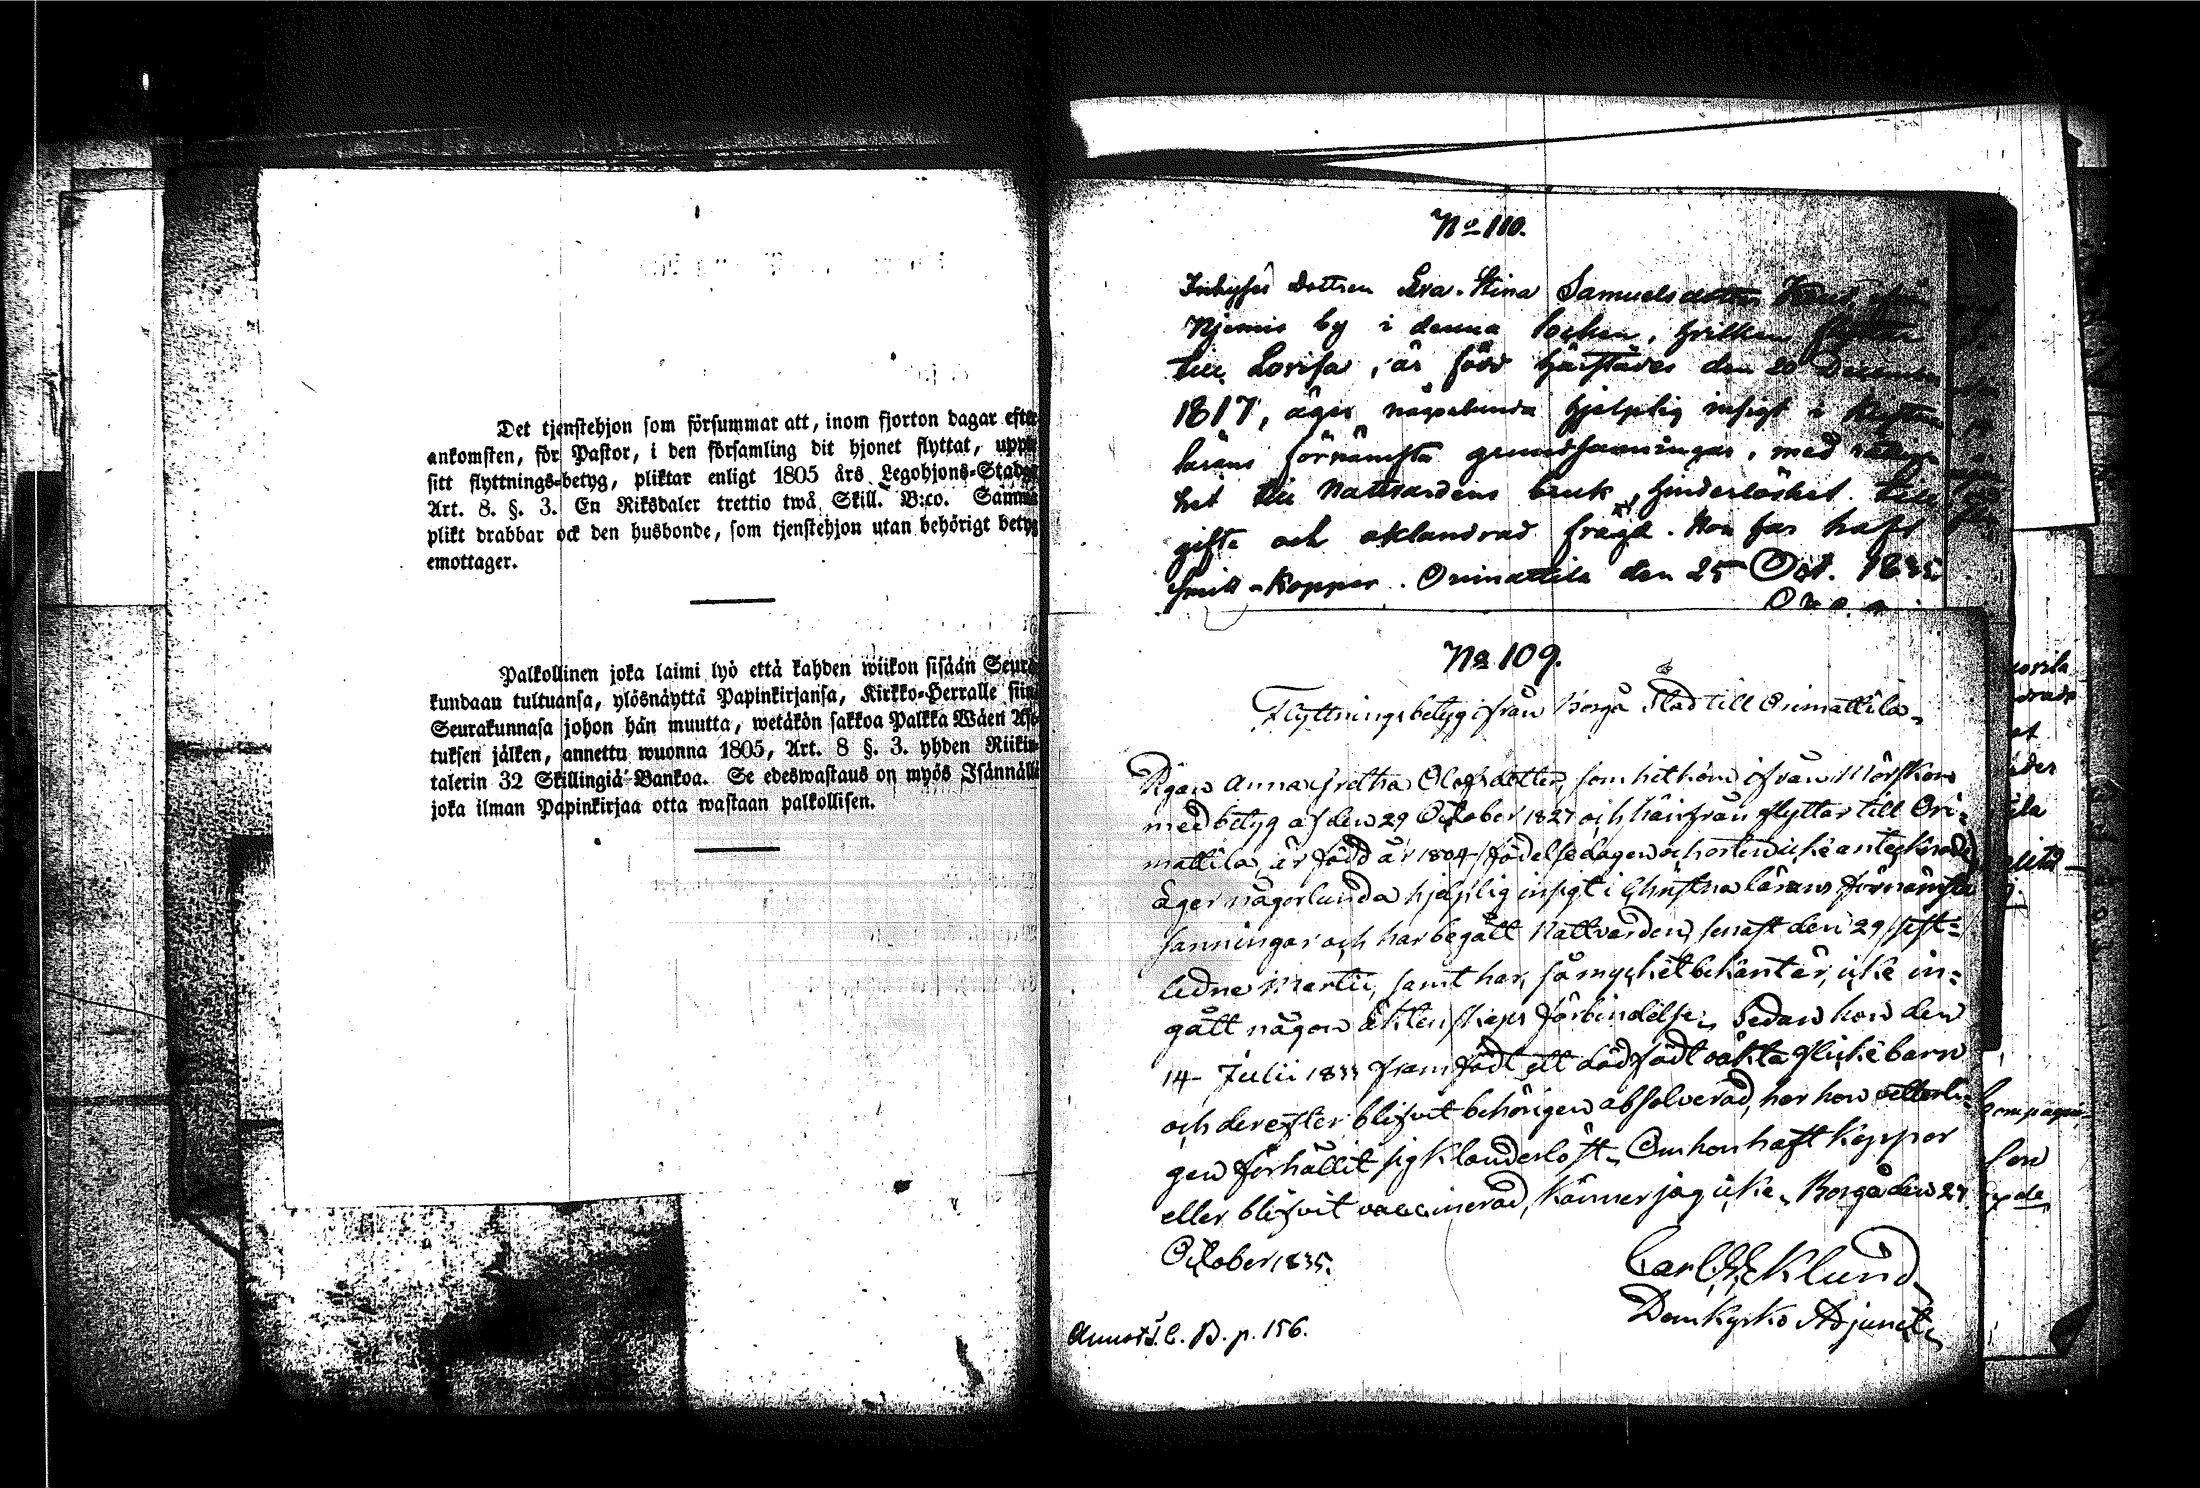 Det tjenstehjon som försummar att, inom fjorton dagar efter
ankomsten, för Pastor, i den församling dit hjonet flyttat, uppte
sitt flyttnings-betyg, pliktar enligt 1805 års Legohjons-Stadga
Art. 8. §. 3. En Riksdaler trettio twå Skill. B:co. Samma
plikt drabbar ock den husbonde, som tjenstehjon utan behörigt betyg
emottager.
Palkollinen joka laimi lyö että kahden wiikon sisään Seura-
kundaan tultuansa, ylösnäyttä Papinkirjansa, Kirkko-Herralle siin
Seurakunnasa johon hän muutta, wetäkön sakkoa Palkka Wäen Ase-
tuksen jälken, annettu wuonna 1805, Art. 8 §. 3. yhden Riikin-
talerin 32 Skillingiä Bankoa. Se edeswastaus on myös Isännällä
joka ilman Papinkirjaa otta wastaan palkollisen.
No 110.
Inhyses Dottren Eva Stina Samuelsdotter
Njemis by i denna Socken, hvilken flyttar
till Lovisa, är född härstädes den 20 December
1817, äger någorlunda hjelplig insigt i Christen
lärans förnämsta grundsanningar, med
het till Nattvardens bruk, hinderlöshet till
gifte och oklandrad frägd. Hon har haft
Smitt-Koppor. Orimattila den 25 Oct. 1835.
No 109.
Flyttningsbetyg ifrån Borgå Stad till Orimattila.
Pigan Anna Gretha Olofsdotter, som hit kom ifrån Mörskom
med betyg af den 29 October 1827 och härifrån flyttar till Ori-
mattila, är född år 1804 /födelsedagen och orten icke antecknade/
äger någorlunda hjelplig insigt i Christna lärans förnämsta
sanningar och har begått Nattvarden senast den 29 sist-
ledne Martii, samt har, så mycket bekant är, icke in-
gått någon äktenskaps förbindelse. Sedan hon den
14 Julii 1833 framfödt ett dödfödt oäkta flickebarn
och derefter blifvit behörigen absolverad, har hon vetterli-
gen förhållit sig klanderlöst. Om hon haft koppor
eller blifvit vaccinerad, känner jag icke. Borgå den 27
October 1835.
Carl G. Eklund
Domkyrko Adjunct.
Annot. S. C. B. p. 156.